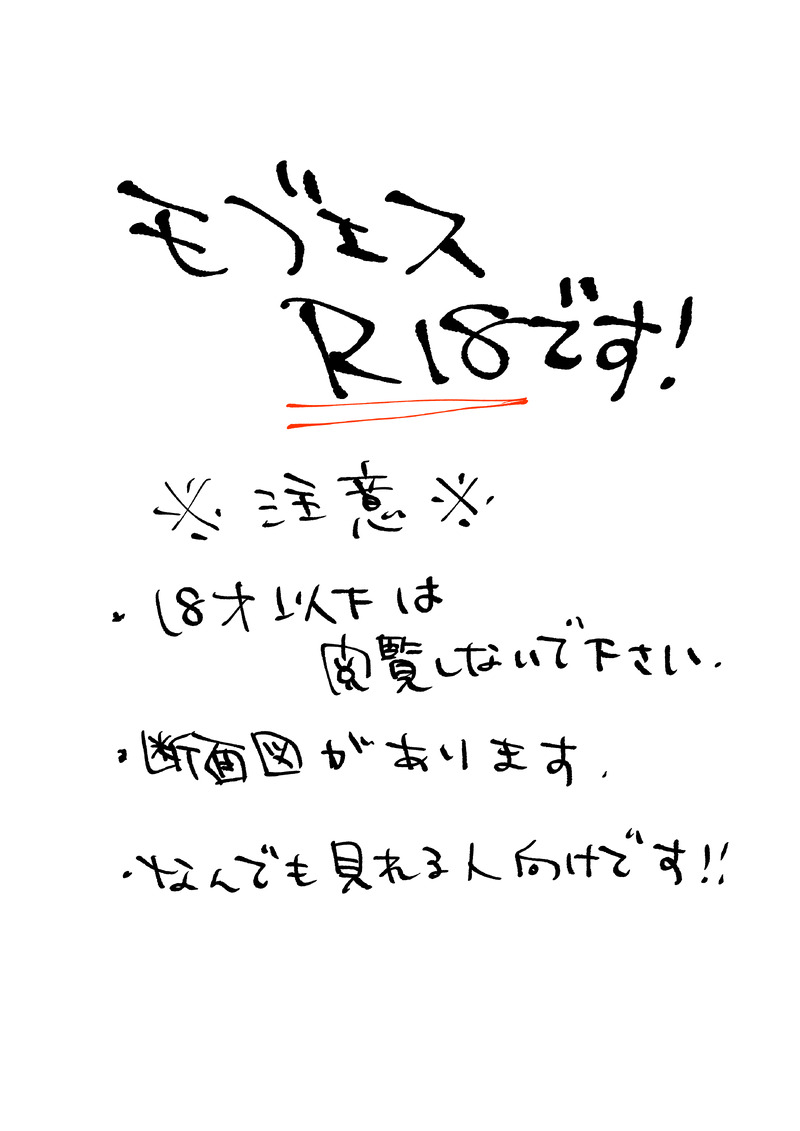 モブエス
R18です!
※注意※
・18才以下は
閲覧しないで下さい.
・断面図があります.
・なんでも見れる人向けです!!